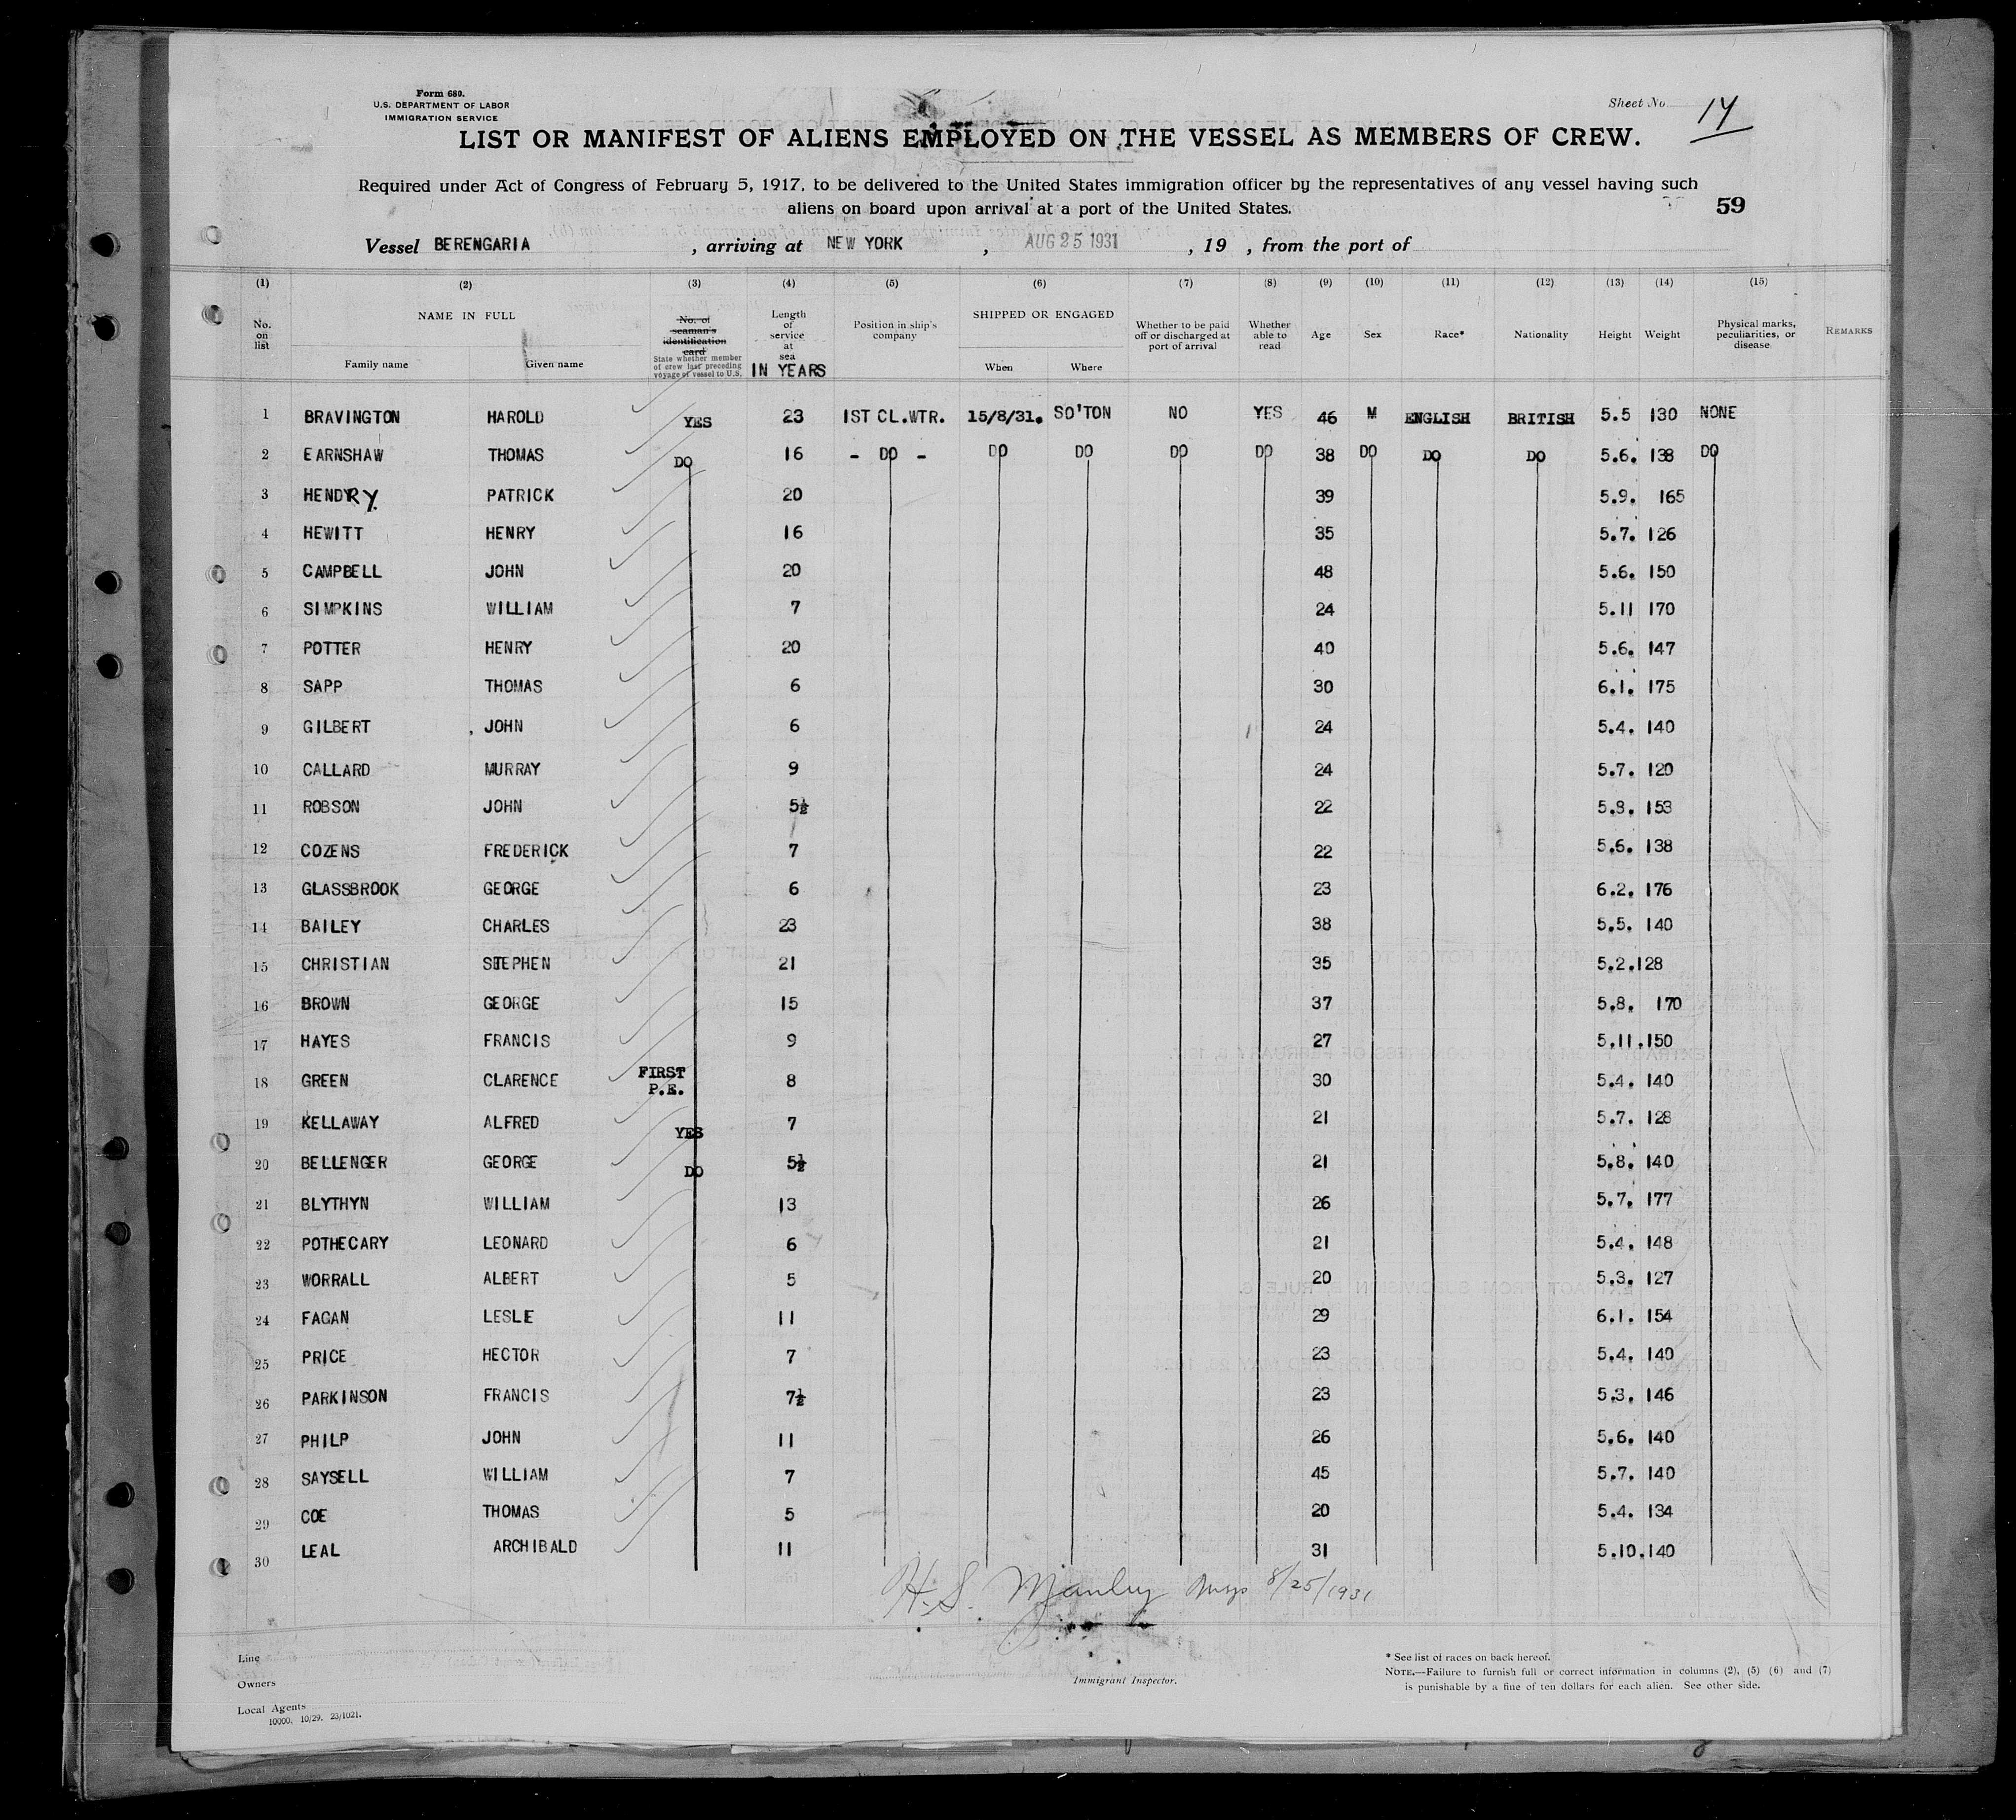 Form 680.
U.S. DEPARTMENT OF LABOR
IMMIGRATION SERVICE
Sheet No 14
LIST OR MANIFEST OF ALIENS EMPLOYED ON THE VESSEL AS MEMBERS OF CREW.
Required under Act of Congress of February 5, 1917, to be delivered to the United States immigration officer by the representatives of any vessel having such
aliens on board upon arrival at a port of the United States.
59
Vessel BERENGARIA , arriving at NEW YORK , AUG 25 1931 , 19 , from the port of
(1) (2) (3) (4) (5) (6) (7) (8) (9) (10) (11) (12) (13) (14) (15)
No. on list
NAME IN FULL
Family name Given name
No. of seaman's identification card
State whether member of crew last preceding voyage of vessel to U.S.
Length of service at sea
IN YEARS
Position in ship's company
SHIPPED OR ENGAGED
When Where
Whether to be paid off or discharged at port of arrival
Whether able to read
Age Sex Race* Nationality Height Weight
Physical marks, peculiarities, or disease
REMARKS
1 BRAVINGTON HAROLD YES 23 1ST CL.WTR. 15/8/31. SO'TON NO YES 46 M ENGLISH BRITISH 5.5 130 NONE
2 EARNSHAW THOMAS DO 16 - DO - DO DO DO DO 38 DO DO DO 5.6. 138 DO
3 HENDRY PATRICK 20 39 5.9. 165
4 HEWITT HENRY 16 35 5.7. 126
5 CAMPBELL JOHN 20 48 5.6. 150
6 SIMPKINS WILLIAM 7 24 5.11 170
7 POTTER HENRY 20 40 5.6. 147
8 SAPP THOMAS 6 30 6.1. 175
9 GILBERT JOHN 6 24 5.4. 140
10 CALLARD MURRAY 9 24 5.7. 120
11 ROBSON JOHN 5½ 22 5.8. 153
12 COZENS FREDERICK 7 22 5.6. 138
13 GLASSBROOK GEORGE 6 23 6.2. 176
14 BAILEY CHARLES 23 38 5.5. 140
15 CHRISTIAN STEPHEN 21 35 5.2.128
16 BROWN GEORGE 15 37 5.8. 170
17 HAYES FRANCIS 9 27 5.11.150
18 GREEN CLARENCE FIRST P.E. 8 30 5.4. 140
19 KELLAWAY ALFRED YES 7 21 5.7. 128
20 BELLENGER GEORGE DO 5½ 21 5.8. 140
21 BLYTHYN WILLIAM 13 26 5.7. 177
22 POTHECARY LEONARD 6 21 5.4. 148
23 WORRALL ALBERT 5 20 5.3. 127
24 FAGAN LESLE 11 29 6.1. 154
25 PRICE HECTOR 7 23 5.4. 140
26 PARKINSON FRANCIS 7½ 23 5.3. 146
27 PHILP JOHN 11 26 5.6. 140
28 SAYSELL WILLIAM 7 45 5.7. 140
29 COE THOMAS 5 20 5.4. 134
30 LEAL ARCHIBALD 11 31 5.10.140
H. S. Manley 8/25/1931
Line
Owners
Local Agents
10000, 10/29. 23/1021.
Immigrant Inspector.
* See list of races on back hereof.
NOTE.—Failure to furnish full or correct information in columns (2), (5) (6) and (7)
is punishable by a fine of ten dollars for each alien. See other side.